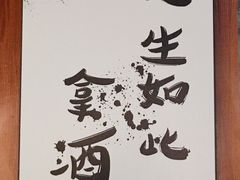 生如此
拿酒